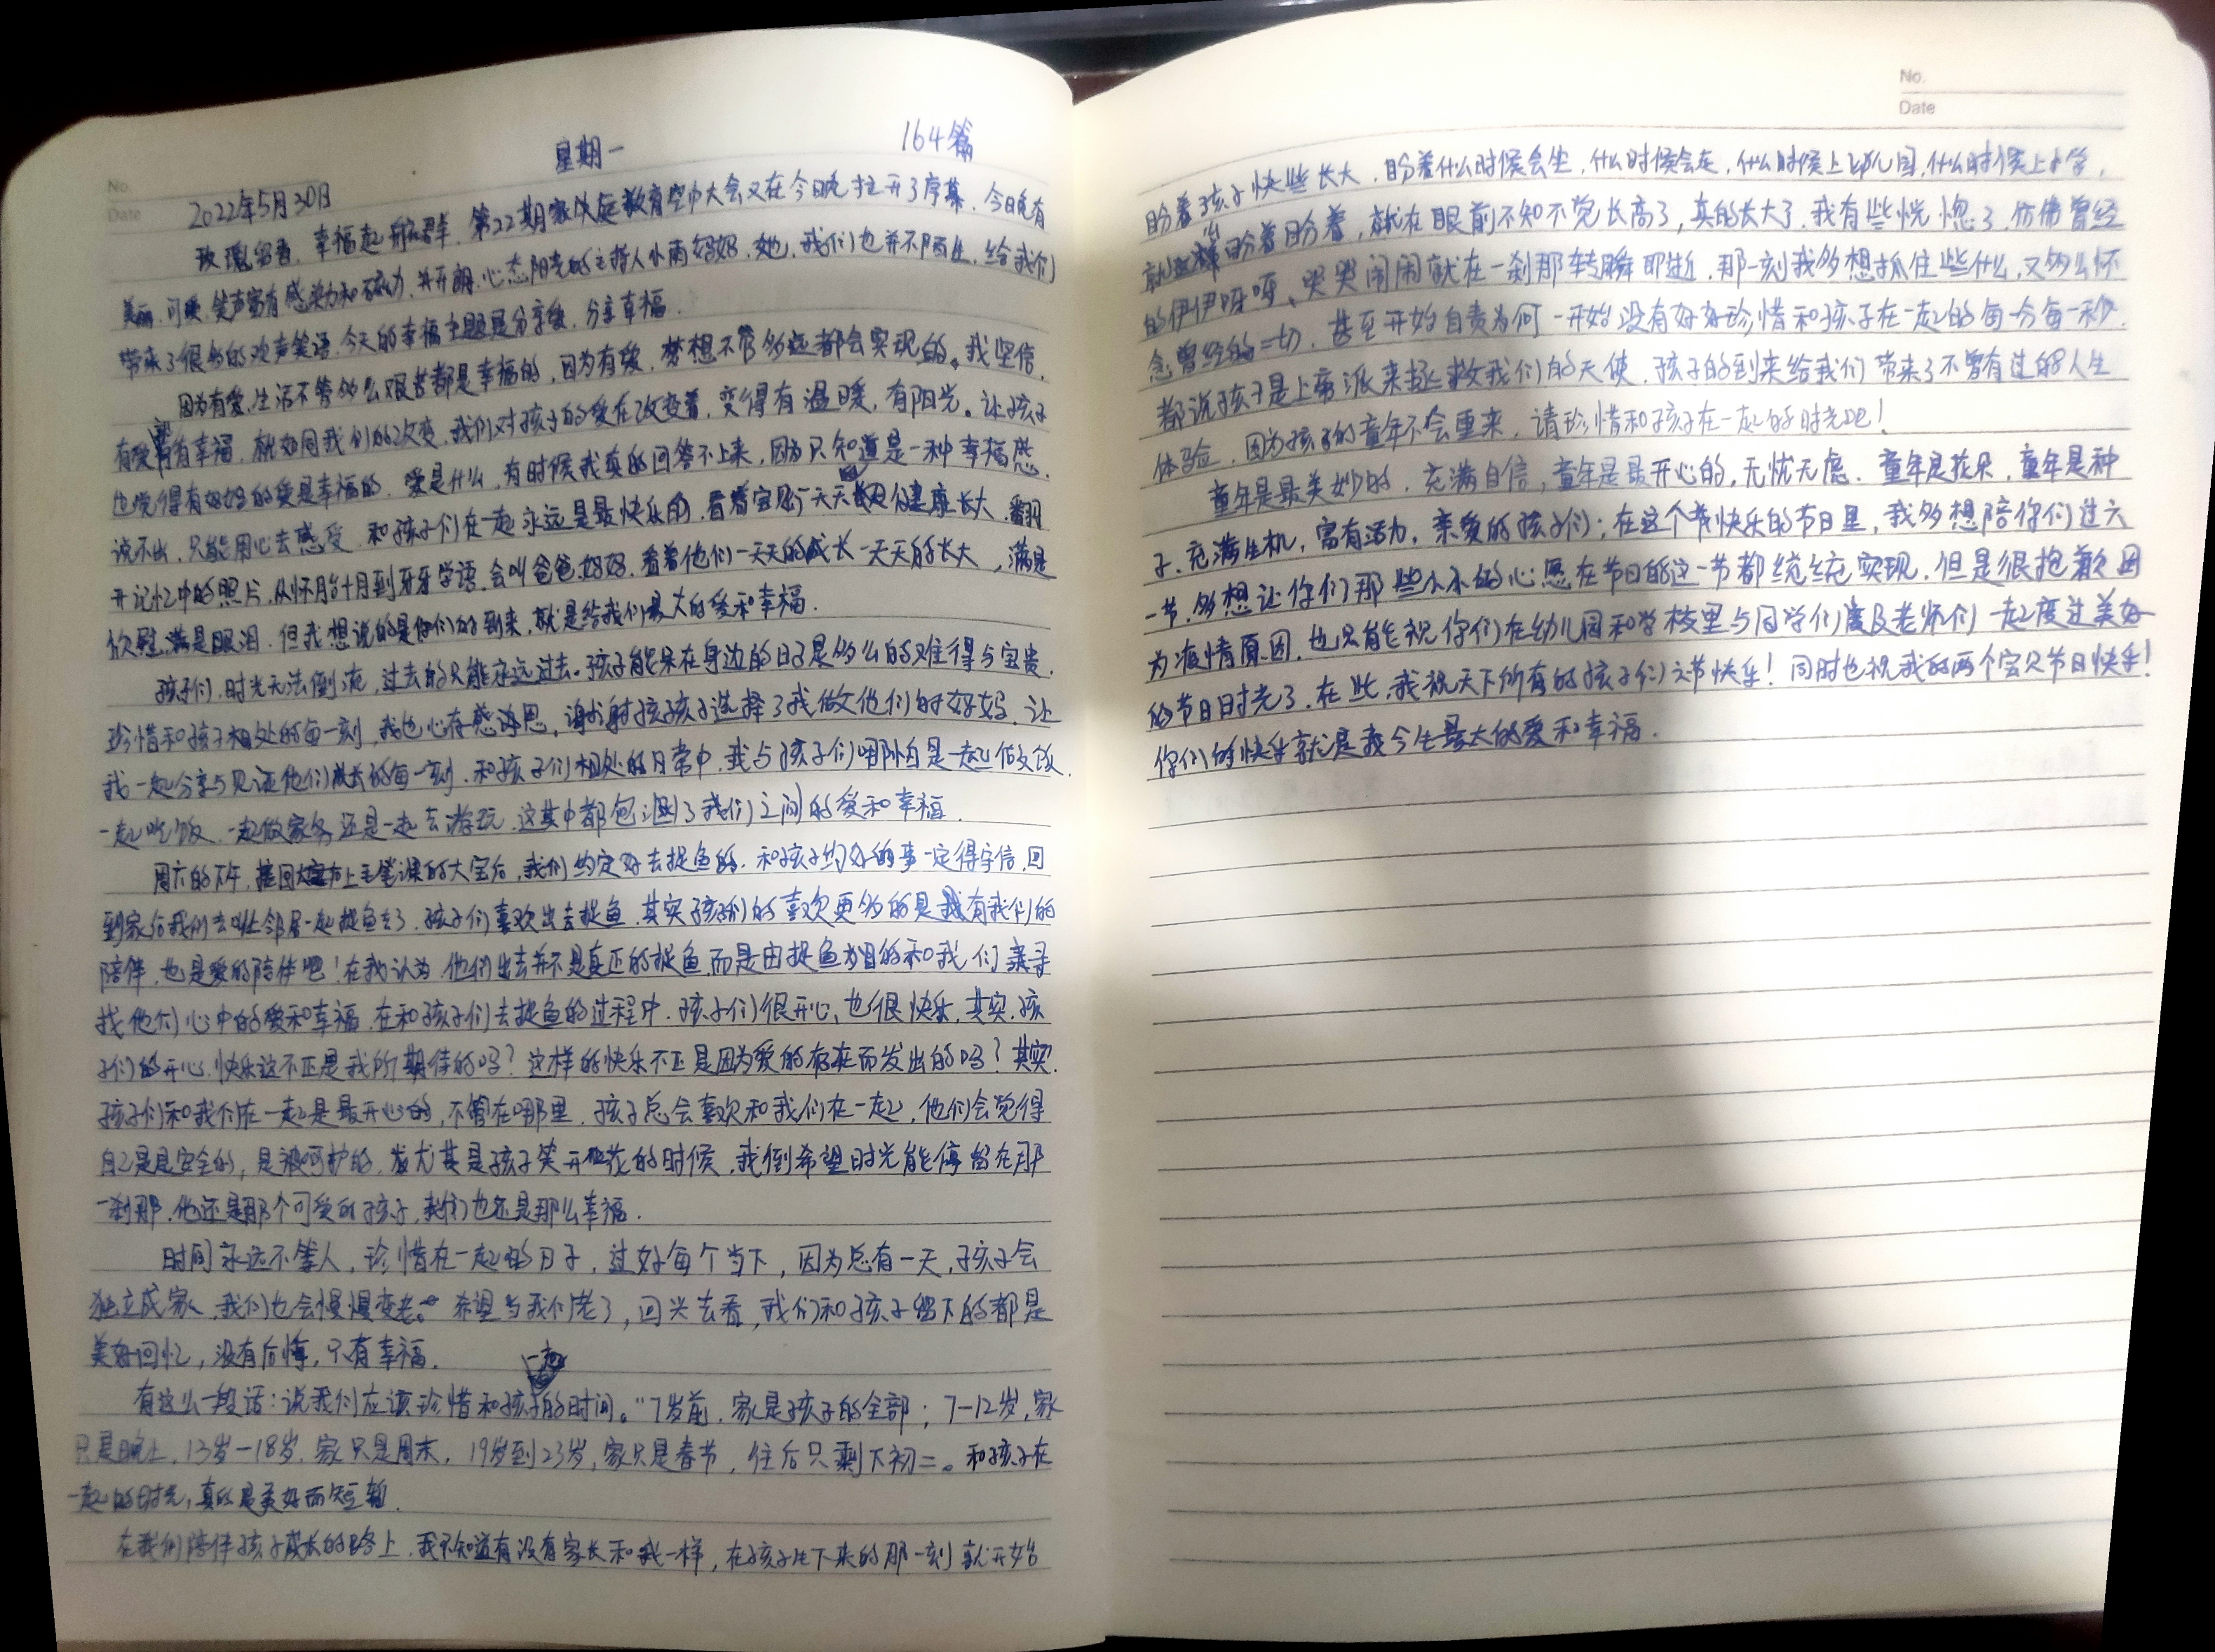 星期一
164篇
No.
Date
2022年5月30日
玫瑰留香,幸福起航群,第22期家庭教育空中大会又在今晚拉开了序幕,今日晚有
美丽、可爱、笑声富有感染力和磁力,并开朗、心态阳光的主持人小雨妈妈,她,我们也并不陌生,给我们
带来了很多的欢声笑语,今天的幸福主题是分享爱,分享幸福。
因为有爱,生活不管多么艰苦都是幸福的,因为有爱,梦想不管多远都会实现的。我坚信,
有爱就有幸福,就如同我们的改变,我们对孩子的爱在改变着,变得有温暖,有阳光。让孩子
也觉得有妈妈的爱是幸福的,爱是什么,有时候我真的回答不上来,因为只知道是一种幸福感,
说不出,只能用心去感受,和孩子们在一起永远是最快乐的,看着宝贝们一天天健康长大,翻
开记忆中的照片,从怀胎十月到牙牙学语,会叫爸爸、妈妈,看着他们一天天的成长一天天的长大,满是
欣慰,满是眼泪,但我想说的是你们的到来,就是给我们最大的爱和幸福。
孩子们,时光无法倒流,过去的只能永远过去。孩子能呆在身边的日子是多么的难得与宝贵,
珍惜和孩子相处的每一刻,我也心存感恩,谢谢孩子选择了我做他们的妈妈,让
我一起分享与见证他们成长的每一刻,和孩子们相处的日常中,我与孩子们哪怕是一起做饭,
一起吃饭,一起做家务还是一起去游玩,这其中都包涵了我们之间的爱和幸福。
周六的下午,接回上毛笔课的大宝后,我们约定好去捉鱼的,和孩子约好的事一定得守信,回
到家后我们去叫上邻居一起捉鱼去了,孩子们喜欢出去捉鱼,其实孩子们的喜欢更多的是有我们的
陪伴,也是爱的陪伴吧!在我认为,他们出去并不是真正的捉鱼,而是由捉鱼为目的和我们寻
找他们心中的爱和幸福,在和孩子们去捉鱼的过程中,孩子们很开心,也很快乐,其实,孩
子们的开心、快乐这不正是我所期待的吗?这样的快乐不正是因为爱的存在而发出的吗?其实,
孩子们和我们在一起是最开心的,不管在哪里,孩子总会喜欢和我们在一起,他们会觉得
自己是是安全的,是被呵护的,尤其是孩子笑开花的时候,我倒希望时光能停留在那
一刹那,他还是那个可爱的孩子,我们也还是那么幸福。
时间永远不等人,珍惜在一起的日子,过好每个当下,因为总有一天,孩子会
独立成家,我们也会慢慢变老。希望当我们老了,回头去看,我们和孩子留下的都是
美好回忆,没有后悔,只有幸福。
有这么一段话:说我们应该珍惜和孩子一起的时间。“7岁前,家是孩子的全部;7-12岁,家
只是晚上,13岁-18岁,家只是周末,19岁到23岁,家只是春节,往后只剩下初二。和孩子在
一起的时光,真的是美好而短暂。
在我们陪伴孩子成长的路上,我不知道有没有家长和我一样,在孩子生下来的那一刻就开始
No.
Date
盼着孩子快些长大,盼着什么时候会坐,什么时候会走,什么时候上幼儿园,什么时候上小学,
盼着盼着盼着,就在眼前不知不觉长高了,真的长大了,我有些恍惚了,仿佛曾经
的伊伊呀呀、哭哭闹闹就在一刹那转瞬即逝,那一刻我多想抓住些什么,又多么怀
念曾经的一切,甚至开始自责为何一开始没有好好珍惜和孩子在一起的每一分每一秒,
都说孩子是上帝派来拯救我们的天使,孩子的到来给我们带来了不曾有过的人生
体验,因为孩子的童年不会重来,请珍惜和孩子在一起的时光吧!
童年是最美妙的,充满自信,童年是最开心的,无忧无虑,童年是花朵,童年是种
子,充满生机,富有活力,亲爱的孩子们;在这个节快乐的节日里,我多想陪你们过六
一节,多想让你们那些小小的心愿在节日的这一节都统统实现,但是很抱歉因
为疫情原因,也只能祝你们在幼儿园和学校里与同学们及老师们一起度过美好
的节日时光了,在此,我祝天下所有的孩子们六节快乐!同时也祝我的两个宝贝节日快乐!
你们的快乐就是我今生最大的爱和幸福。